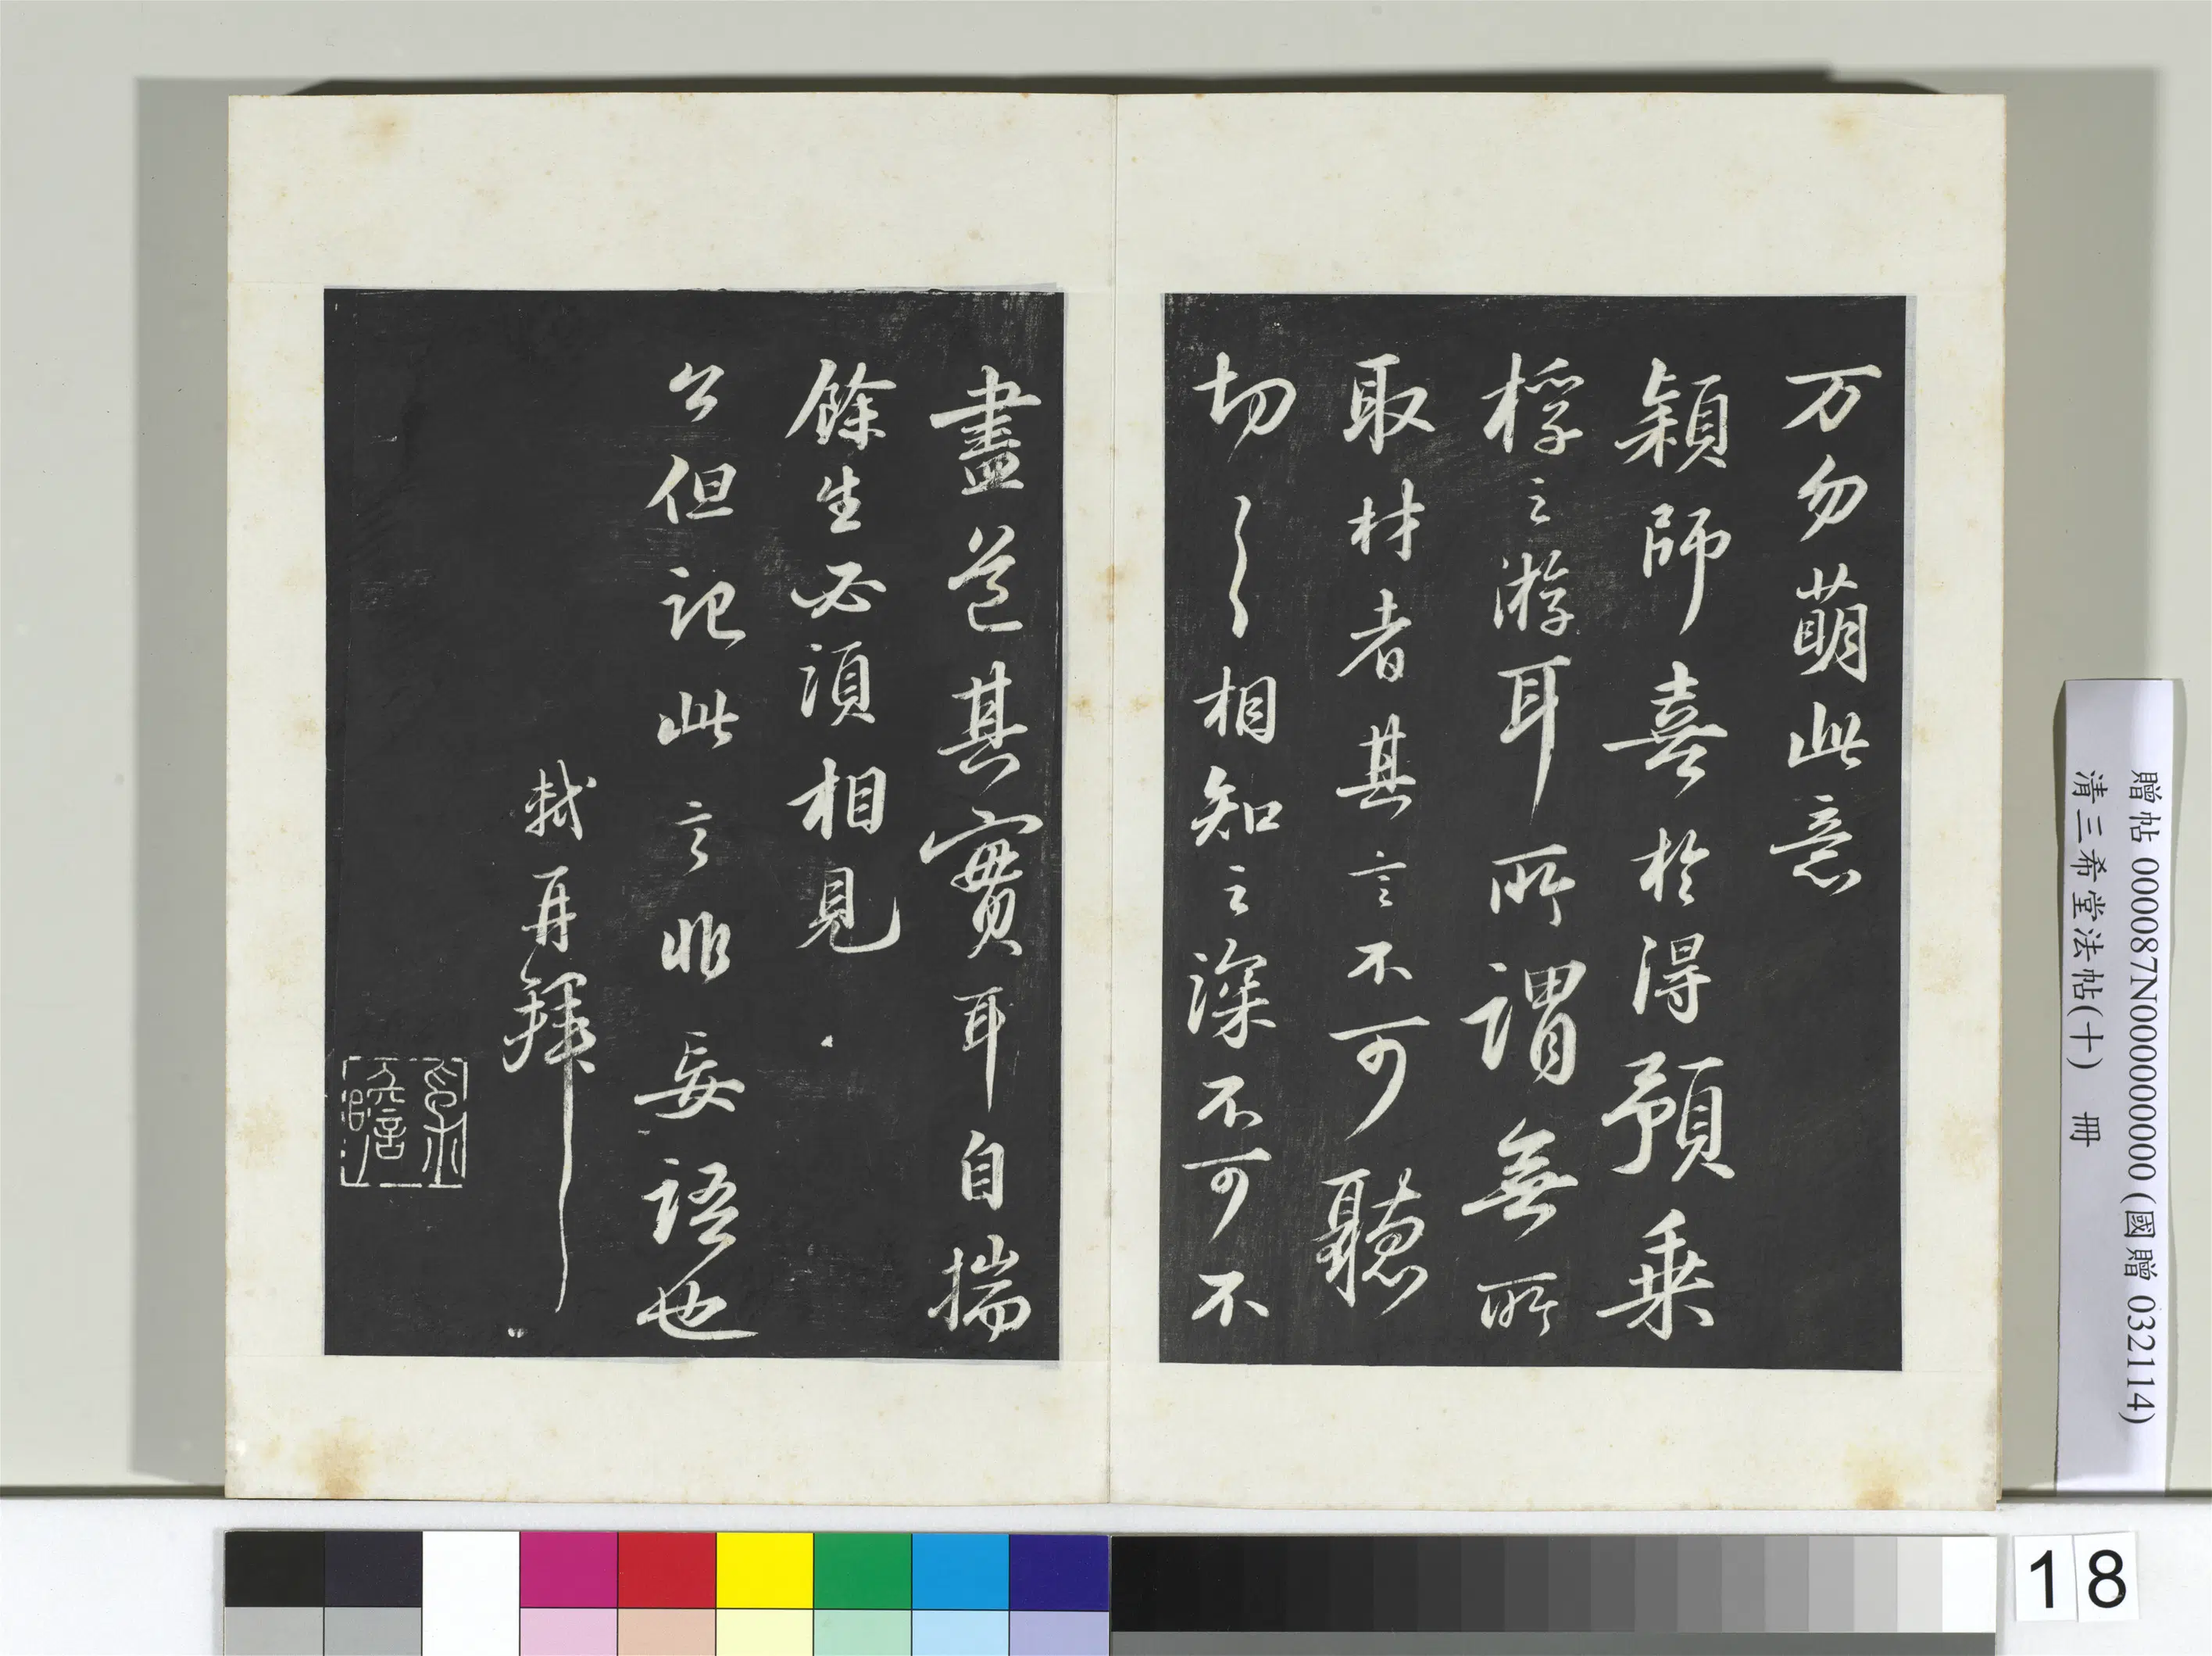 万勿萌此意
頴師喜於得預乗
桴之游耳所謂無所
取材者其言不可聽
切〻相知之深不可不
盡道其實耳自揣
餘生必須相見
公但記此言非妄語也
軾再拜
贈帖 000087N000000000 (國贈 032114)
清三希堂法帖(十) 冊
18